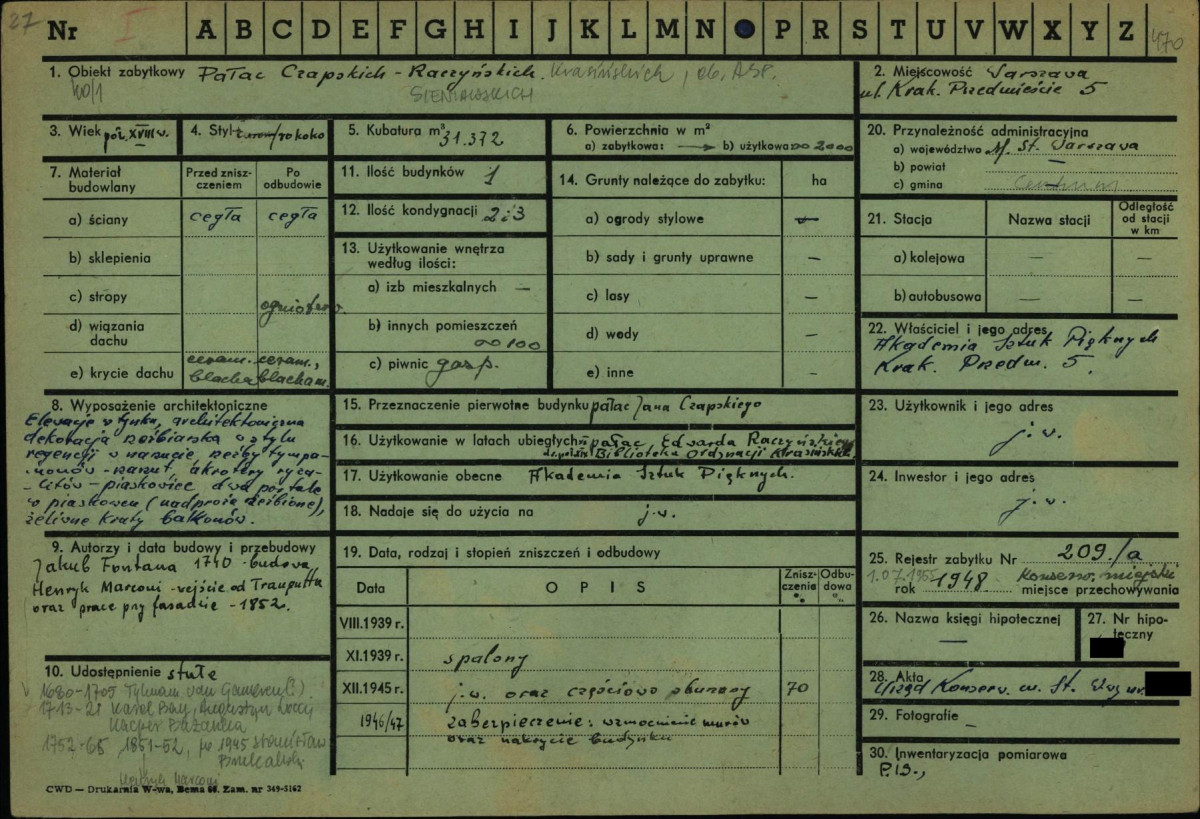 27
Nr I A B C D E F G H I J K L M N P R S T U V W X Y Z 470
1. Obiekt zabytkowy Pałac Czapskich - Raczyńskich, Krasińskich, ob. ASP.
SIENIAWSKICH
2. Miejscowość Warszawa
ul. Krak. Przedmieście 5
3. Wiek poł. XVIII w.
4. Styl /rokoko
5. Kubatura m³ 31.372
6. Powierzchnia w m²
a) zabytkowa: → b) użytkowa ∞ 2000
20. Przynależność administracyjna
a) województwo M. St. Warszawa
b) powiat —
c) gmina
7. Materiał budowlany
Przed zniszczeniem
Po odbudowie
a) ściany cegła cegła
b) sklepienia
c) stropy ogniotrw.
d) wiązania dachu
e) krycie dachu ceram. blacha ceram., blacha m.
11. Ilość budynków 1
12. Ilość kondygnacji 2 i 3
13. Użytkowanie wnętrza według ilości:
a) izb mieszkalnych —
b) innych pomieszczeń ∞ 100
c) piwnic gosp.
14. Grunty należące do zabytku: ha
a) ogrody stylowe —
b) sady i grunty uprawne —
c) lasy —
d) wody —
e) inne —
21. Stacja Nazwa stacji Odległość od stacji w km
a) kolejowa — —
b) autobusowa — —
22. Właściciel i jego adres
Akademia Sztuk Pięknych
Krak. Przedm. 5.
8. Wyposażenie architektoniczne
Elewacje w tynku, architektoniczna
dekoracja rzeźbiarska w stylu
regencji w narzucie, rzeźby tympa-
-nonów - narzut, akrotery ryza-
-litów - piaskowiec dwa portale
w piaskowcu (nadproża rzeźbione),
żeliwne kraty balkonów.
15. Przeznaczenie pierwotne budynku pałac Jana Czapskiego
16. Użytkowanie w latach ubiegłych pałac, Edwarda Raczyńskiego
Biblioteka Ordynacji Krasińskich
17. Użytkowanie obecne Akademia Sztuk Pięknych.
18. Nadaje się do użycia na j.w.
23. Użytkownik i jego adres
j.w.
24. Inwestor i jego adres
j.w.
9. Autorzy i data budowy i przebudowy
Jakub Fontana 1740 - budowa,
Henryk Marconi - wejście od Traugutta
oraz prace przy fasadzie - 1852.
10. Udostępnienie stałe
1680-1705 Tylmann van Gameren(?).
1713-21 Karol Bay, Augustyn Locci
Kacper Bażanka
1752-65, 1851-52, po 1945 Stanisław
Brukalski
Henryk Marconi
19. Data, rodzaj i stopień zniszczeń i odbudowy
Data OPIS Zniszczenia % Odbudowa %
VIII.1939 r.
XI.1939 r. spalony
XII.1945 r. j.w. oraz częściowo zburzony 70
1946/47 zabezpieczenie: wzmocnienie murów
oraz nakrycie budynku
25. Rejestr zabytku Nr 209./a
1.07.1965
rok 1948 Konserw. miejski
miejsce przechowywania
26. Nazwa księgi hipotecznej
—
27. Nr hipoteczny
28. Akta
Urząd Konserw. m. St. W-wy nr.
29. Fotografie —
30. Inwentaryzacja pomiarowa
P.IS.,
CWD — Drukarnia W-wa, Bema 60. Zam. nr 349-5162